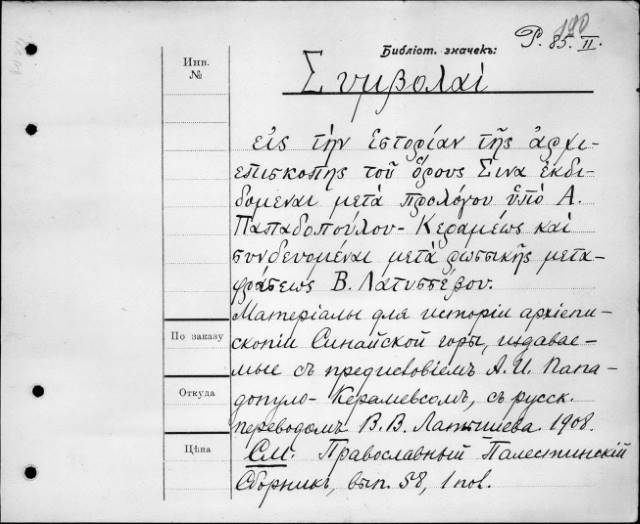 190
Библіот. значекъ: P. 85. II.
Инв.
№
Συμβολαί
εἰς τὴν ἱστορίαν τῆς ἀρχι-
επισκοπῆς τοῦ ὄρους Σινα ἐκδι-
δομεναι μετὰ προλόγου ὑπὸ Α.
Παπαδοπούλου-Κεραμέως καὶ
συνδευομέναι μετὰ ρωσσικῆς μετα-
φράσεως Β. Λατυσσέβου.
Матеріалы для исторіи архіепи-
скопіи Синайской горы, издавае-
По заказу
мые съ предисловіемъ А. И. Папа-
Откуда
допуло-Керамевсомъ, съ русск.
переводомъ В. В. Латышева. 1908.
Цѣна
См. Православный Палестинскій
Сборникъ, вып. 58, 1 пол.